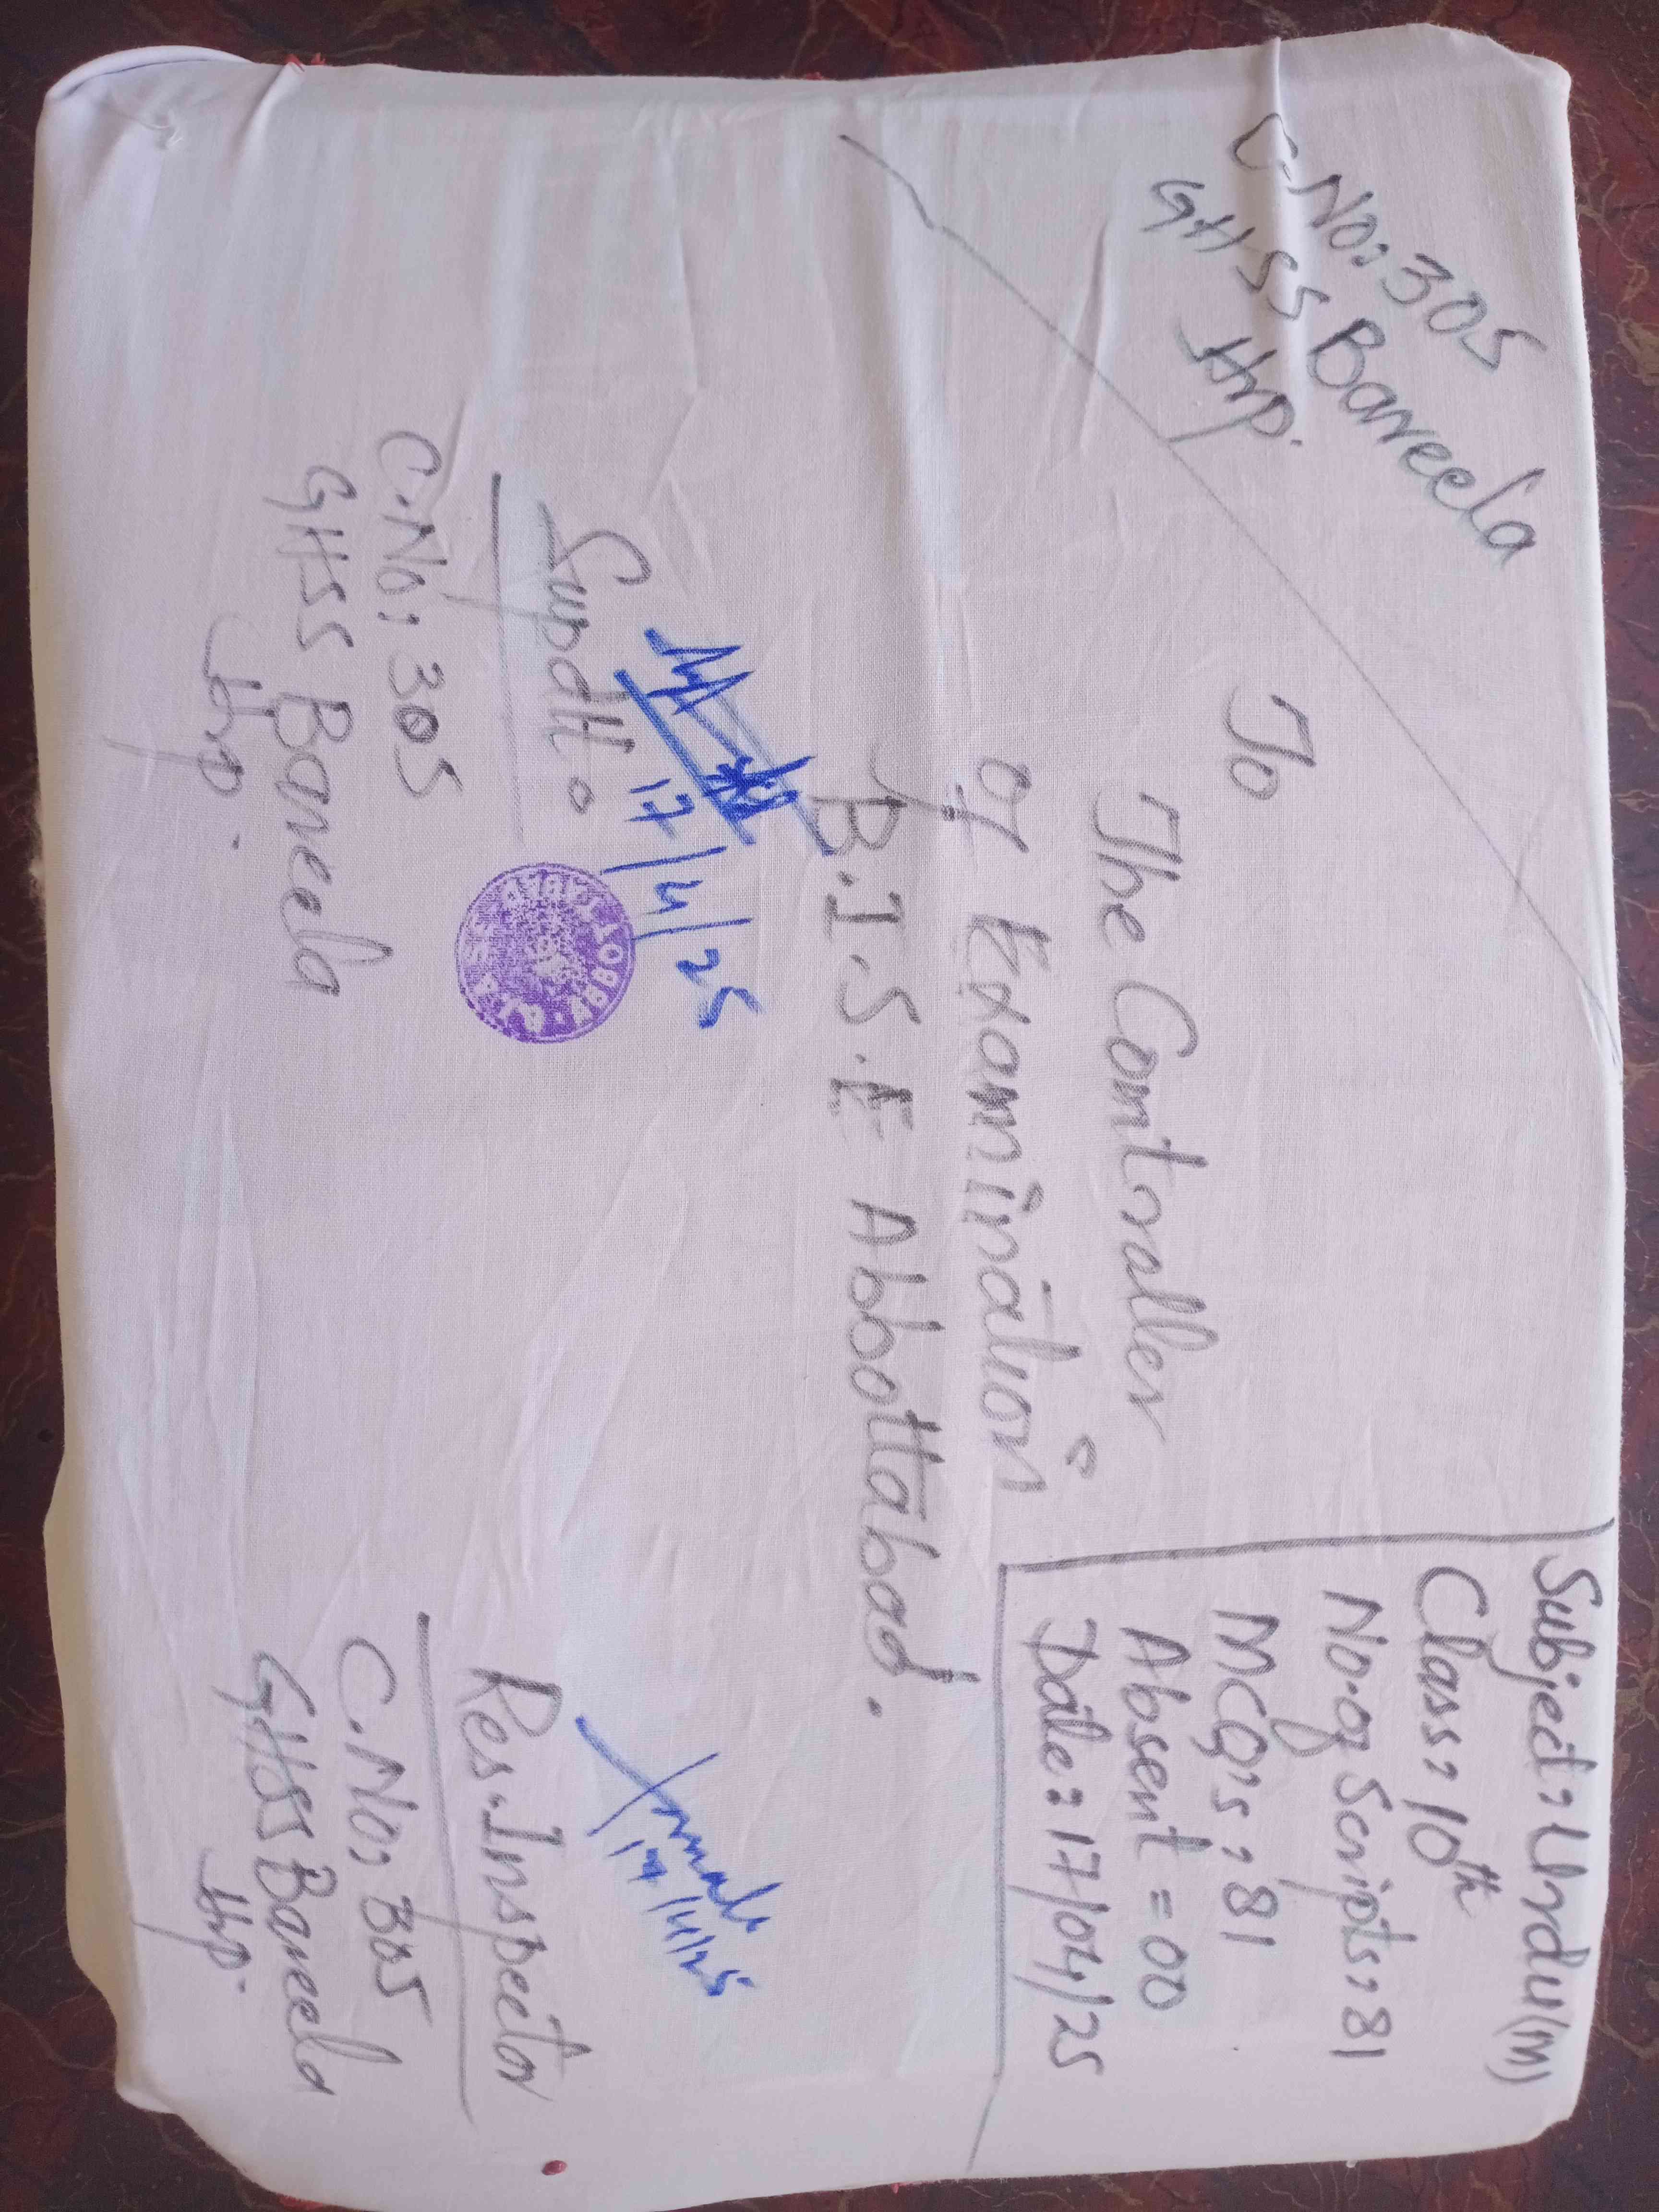 C.No: 305
GHSS Bareela
Hrp.
Subject: Urdu(M)
Class: 10th
No. of Scripts: 81
MCQ's: 81
Absent = 00
Date: 17/04/25
To
The Controller
of Examination
B.I.S.E Abbottabad.
17/4/25
Supdtt.
C.No: 305
GHSS Bareela
Hrp.
17/4/25
Res. Inspector
C.No: 305
GHSS Bareela
Hrp.